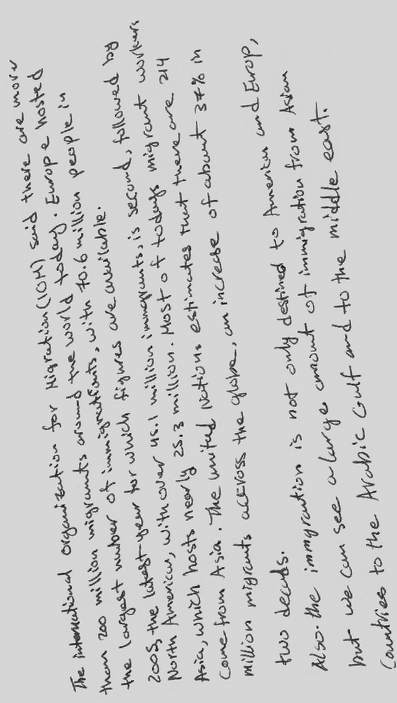 The international Organization for Migration (IOM) said there are more
than 200 million migrants around the world today. Europe hosted
the largest number of immigrants, with 70.6 million people in
2005, the latest year for which figures are available.
North American, with over 45.1 million immigrants, is second, followed by
Asia, which hosts nearly 25.3 million. Most of todays migrant workers
come from Asia. The united Nations estimates that there are 214
million migrants across the globe, an increase of about 37% in
two decads.
Also the immigration is not only destined to American and Europ,
but we can see a large amount of immigration from Asian
Countries to the Arabic Gulf and to the middle east.